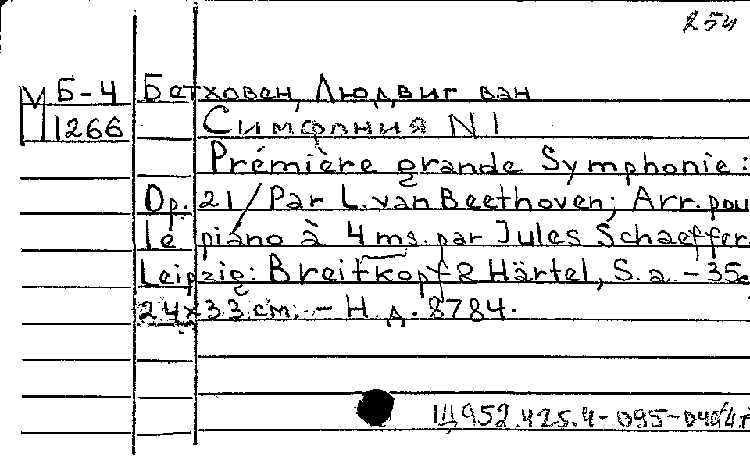 254
Б-4 Бетховен, Людвиг ван
М 1266 Симфония N 1
Prémière grande Symphonie:
Op. 21/Par L. van Beethoven; Arr. pou
le piáno à 4 ms. par Jules Schaeffer
Leipzig: Breitkopf & Härtel, S. a. - 35c
24x33 см. - Н. д. 8784.
Щ952.425.4-095-04